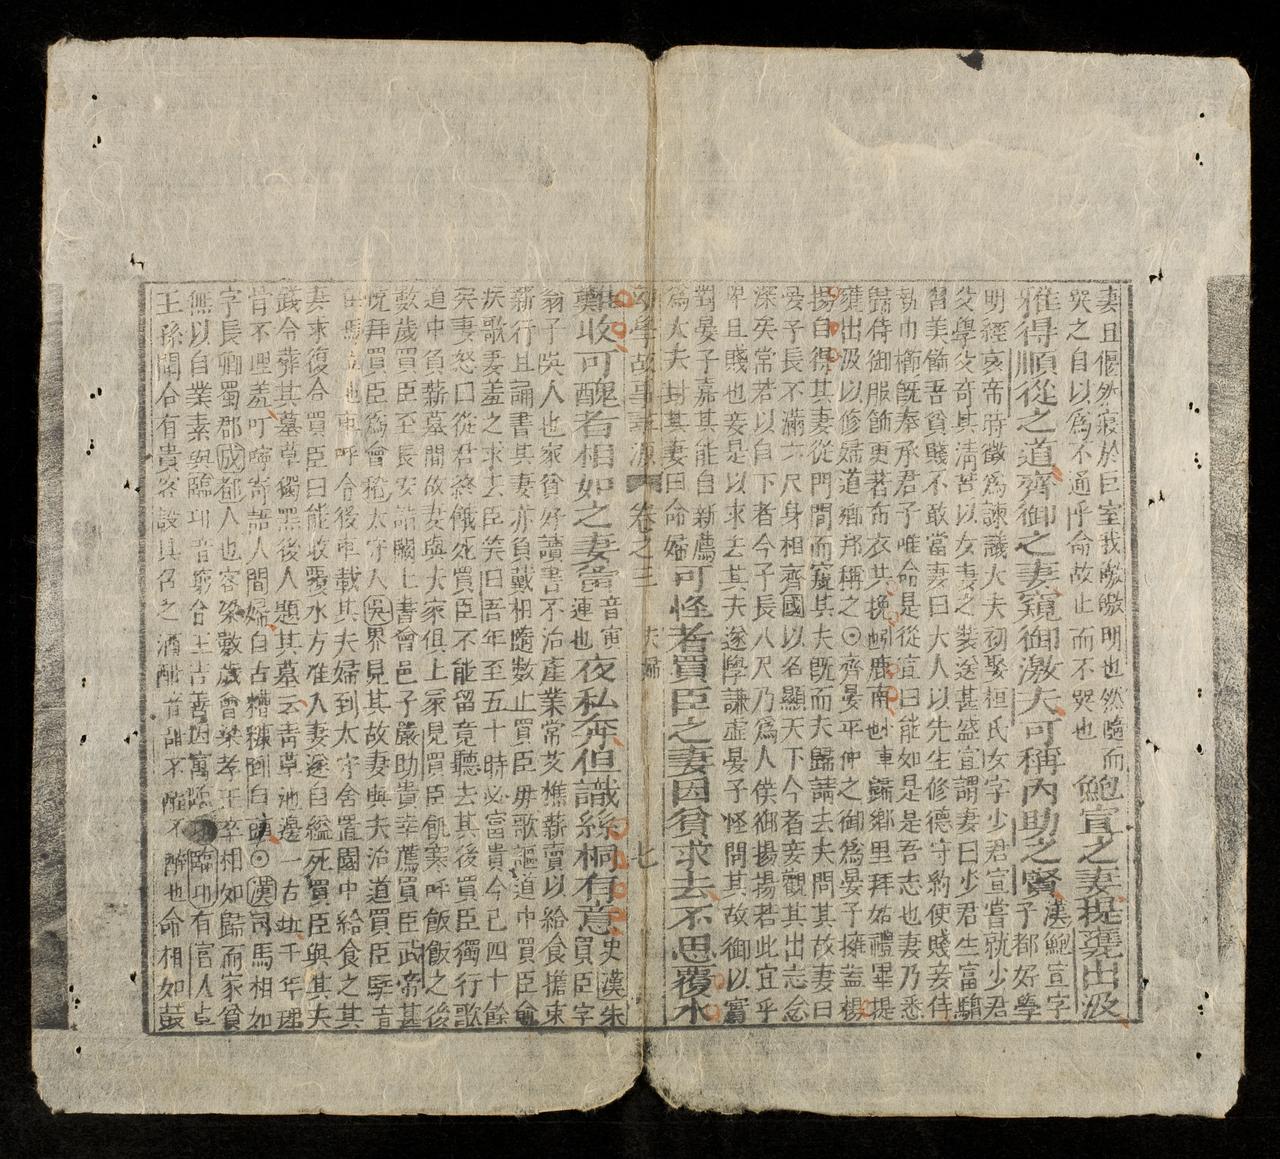 妻且偃然寢於巨室我噭噭明也然隨而
哭之自以爲不通乎命故止而不哭也
鮑宣之妻提甕出汲
雍得順從之道齊御之妻窺御激夫可稱內助之賢
漢鮑宣字
子都好學
明經哀帝時徵爲諫議大夫初娶桓氏女字少君宣嘗就少君
父學父奇其淸苦以女妻之裝送甚盛宣謂妻曰少君生富驕
習美飾吾貧賤不敢當妻曰大人以先生修德守約使賤妾侍
執巾櫛旣奉承君子唯命是從宣曰能如是是吾志也妻乃悉
歸侍御服飾更著布衣共挽鹿車歸鄉里拜姑禮畢提
甕出汲以修婦道鄉邦稱之⊙齊晏平仲之御爲晏子擁蓋揚
揚自得其妻從門間而窺其夫旣而夫歸請去夫問其故妻曰
晏子長不滿六尺身相齊國以名顯天下今者妾觀其出志念
深矣常若以自下者今子長八尺乃爲人僕御揚揚若此宜乎
卑且賤也妾是以求去其夫遂學謙虛晏子怪問其故御以實
對晏子嘉其能自新薦
爲大夫封其妻曰命婦
可怪者買臣之妻因貧求去不思覆水
幼學故事尋源 卷之三 夫婦 七
難收可醜者相如之妻夤
音寅
連也
夜私奔但識絲桐有意
史漢朱
買臣字
翁子吳人也家貧好讀書不治產業常艾樵薪賣以給食擔束
薪行且誦書其妻亦負戴相隨數止買臣毋歌謳道中買臣愈
疾歌妻羞之求去臣笑曰吾年至五十時必富貴今已四十餘
矣妻怒曰從君終餓死買臣不能留竟聽去其後買臣獨行歌
道中負薪墓間故妻與夫家俱上冢見買臣飢寒呼飯飯之後
數歲買臣至長安詣闕上書會邑子嚴助貴幸薦買臣武帝甚
悅拜買臣爲會稽太守入吳界見其故妻與夫治道買臣孥音
馬也車呼令後車載其夫婦到太守舍置園中給食之其
妻求復合買臣曰能收覆水方准入妻遂自縊死買臣與其夫
錢令葬其墓草獨黑後人題其墓云靑草池邊一古坵千年埋
骨不埋羞叮嚀寄語人間婦自古糟糠到白頭⊙漢司馬相如
字長卿蜀郡成都人也客梁數歲會梁孝王卒相如歸而家貧
無以自業素與臨卭音窮令王吉善因寓臨卭有富人卓
王孫聞令有貴客設具召之酒酣音甜不醒不醉也命相如鼓